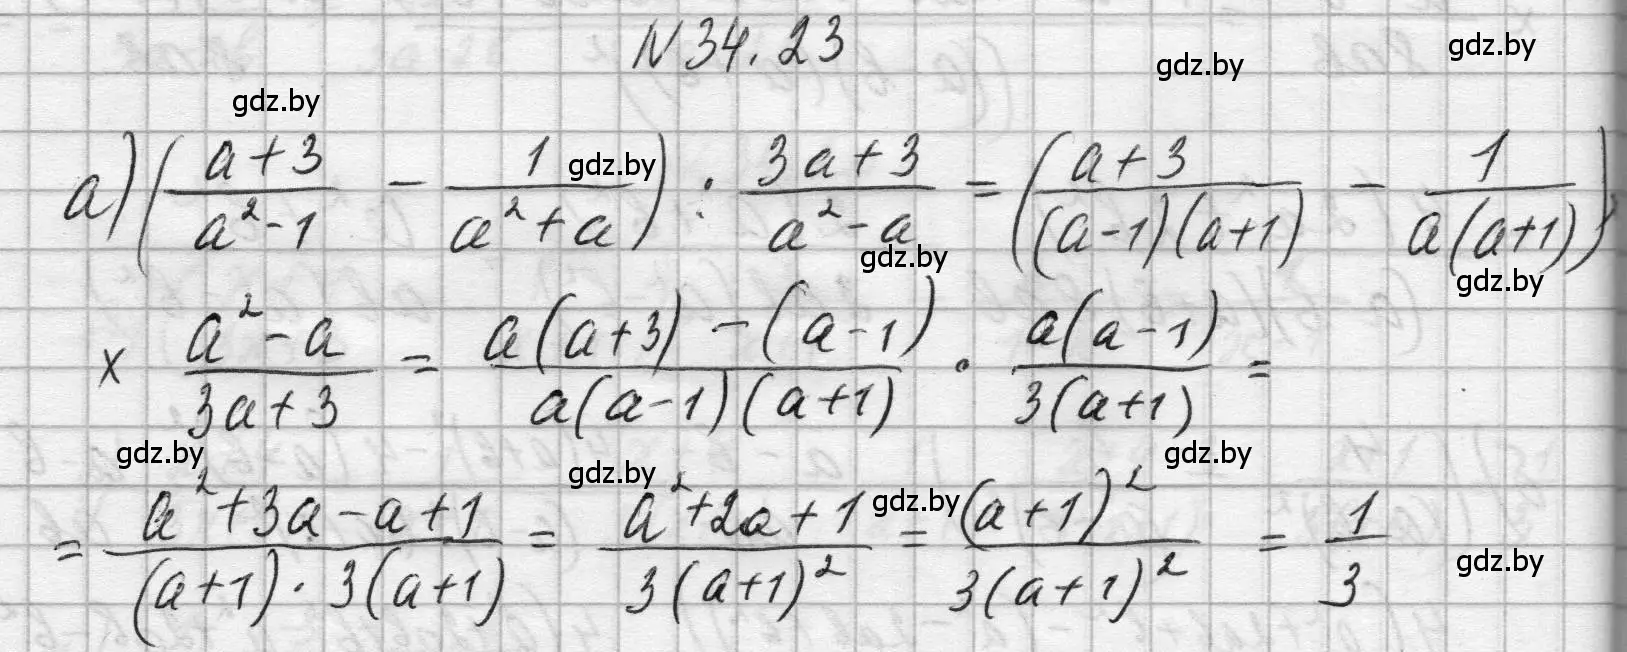 N34.23
gdz.by
gdz.by
gdz.by
a) ( (a+3)/(a²-1) - 1/(a²+a) ) : (3a+3)/(a²-a) = ( (a+3)/((a-1)(a+1)) - 1/(a(a+1)) ) ×
gdz.by
gdz.by
gdz.by
× (a²-a)/(3a+3) = (a(a+3) - (a-1))/(a(a-1)(a+1)) · (a(a-1))/(3(a+1)) =
gdz.by
gdz.by
gdz.by
= (a²+3a-a+1)/((a+1)·3(a+1)) = (a²+2a+1)/(3(a+1)²) = (a+1)²/(3(a+1)²) = 1/3
gdz.by
gdz.by